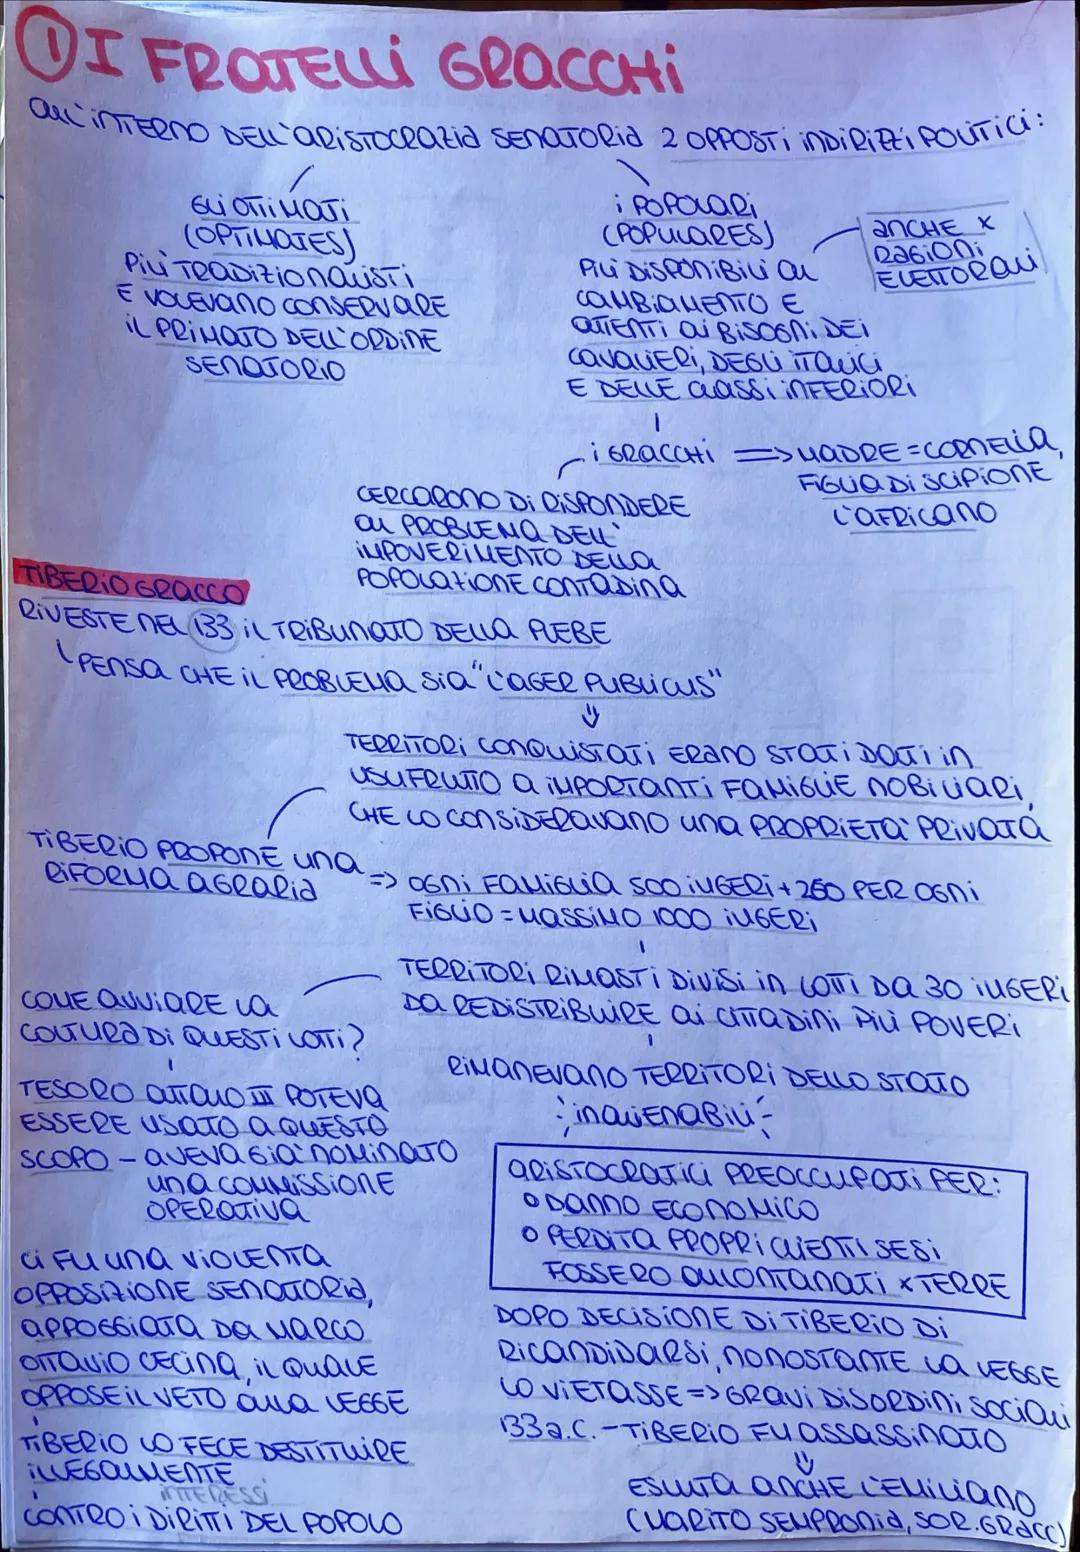 ① I FRATELLI GRACCHI
ALL'INTERNO DELL'ARISTOCRAZIA SENATORIA 2 OPPOSTI INDIRIZZI POLITICI:
GLI OTTIMATI
(OPTIMATES)
PIÙ TRADIZIONALISTI
E VOLEVANO CONSERVARE
IL PRIMATO DELL'ORDINE
SENATORIO
I POPOLARI
(POPULARES)
PIÙ DISPONIBILI AL
CAMBIAMENTO E
ATTENTI AI BISOGNI DEI
CAVALIERI, DEGLI ITALICI
E DELLE CLASSI INFERIORI
ANCHE X
RAGIONI
ELETTORALI
I GRACCHI => MADRE = CORNELIA,
FIGLIA DI SCIPIONE
L'AFRICANO
CERCARONO DI RISPONDERE
AL PROBLEMA DELL'
IMPOVERIMENTO DELLA
POPOLAZIONE CONTADINA
TIBERIO GRACCO
RIVESTE NEL 133 IL TRIBUNATO DELLA PLEBE
PENSA CHE IL PROBLEMA SIA "L'AGER PUBLICUS"
TERRITORI CONQUISTATI ERANO STATI DATI IN
USUFRUTTO A IMPORTANTI FAMIGLIE NOBILIARI,
CHE LO CONSIDERAVANO UNA PROPRIETÀ PRIVATA
TIBERIO PROPONE UNA
RIFORMA AGRARIA
=> OGNI FAMIGLIA 500 IUGERI + 250 PER OGNI
FIGLIO = MASSIMO 1000 IUGERI
TERRITORI RIMASTI DIVISI IN LOTTI DA 30 IUGERI
DA REDISTRIBUIRE AI CITTADINI PIÙ POVERI
RIMANEVANO TERRITORI DELLO STATO
INALIENABILI
COME AVVIARE LA
COLTURA DI QUESTI LOTTI?
TESORO ATTALO III POTEVA
ESSERE USATO A QUESTO
SCOPO - AVEVA GIÀ NOMINATO
UNA COMMISSIONE
OPERATIVA
ARISTOCRATICI PREOCCUPATI PER:
• DANNO ECONOMICO
• PERDITA PROPRI CLIENTI SE SI
FOSSERO ALLONTANATI X TERRE
CI FU UNA VIOLENTA
OPPOSIZIONE SENATORIA,
APPOGGIATA DA MARCO
OTTAVIO CECINA, IL QUALE
OPPOSE IL VETO ALLA LEGGE
TIBERIO LO FECE DESTITUIRE
ILLEGALMENTE
INTERESSI
CONTRO I DIRITTI DEL POPOLO
DOPO DECISIONE DI TIBERIO DI
RICANDIDARSI, NONOSTANTE LA LEGGE
LO VIETASSE => GRAVI DISORDINI SOCIALI
133 a.C. - TIBERIO FU ASSASSINATO
ESULTA ANCHE L'EMILIANO
(MARITO SEMPRONIA, SOR. GRACC)